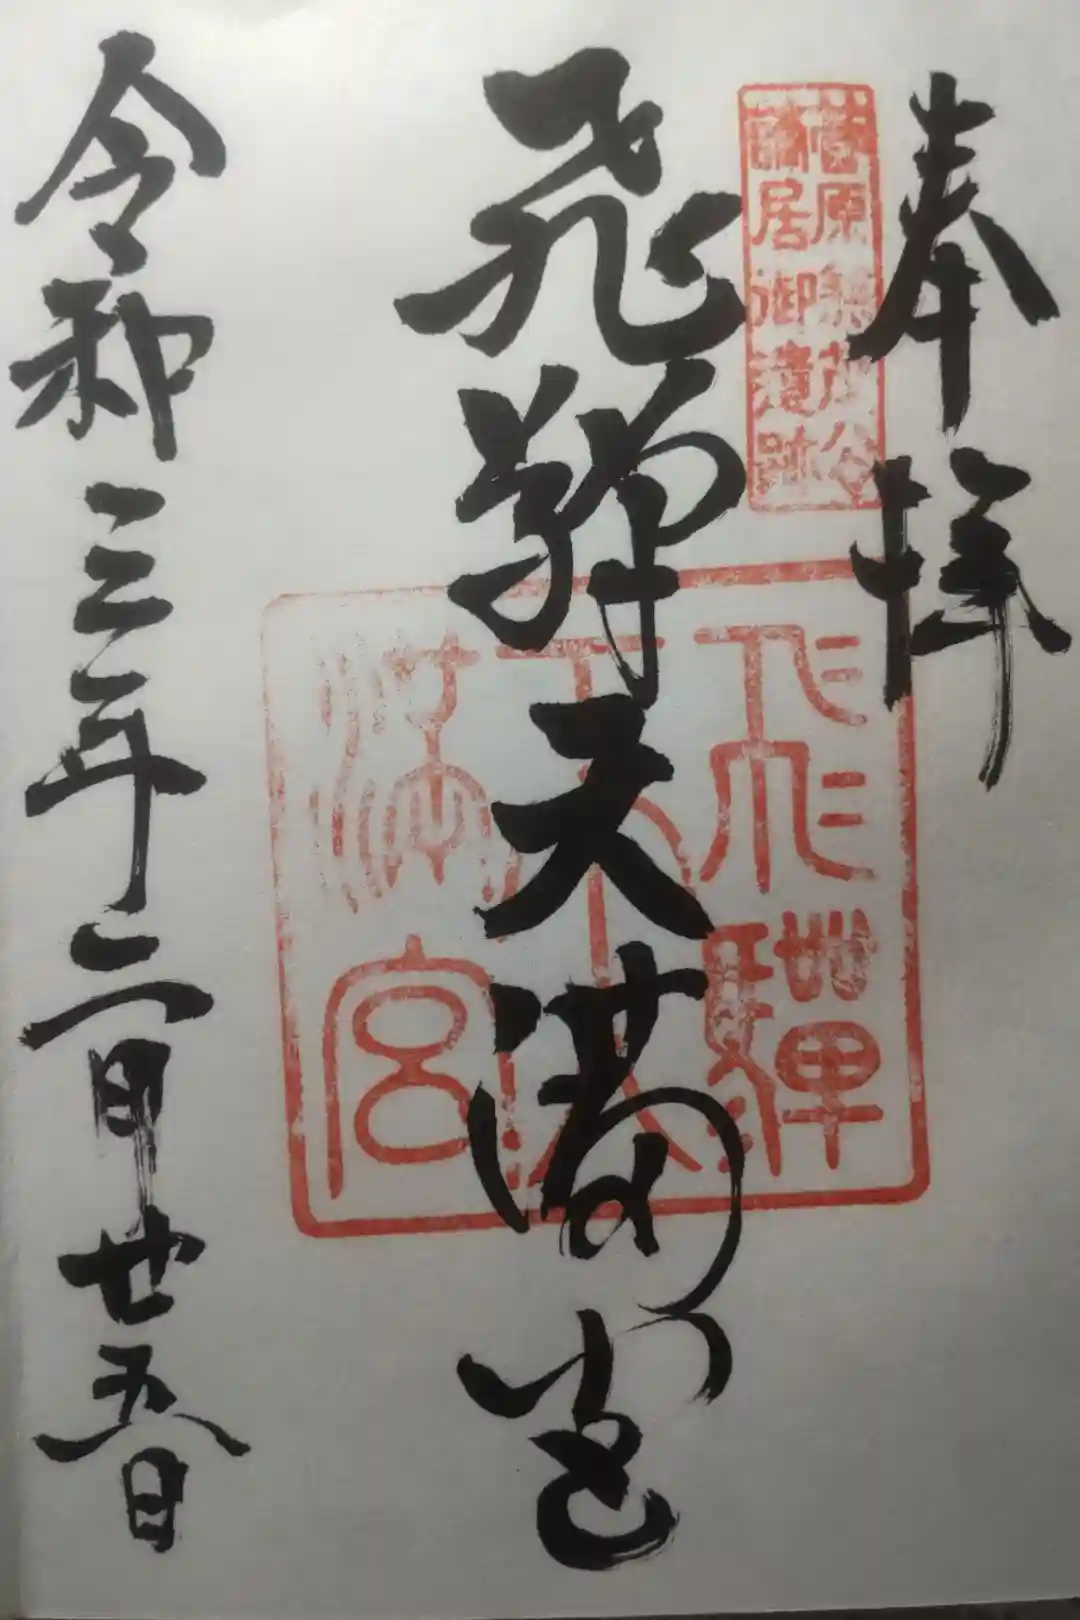 奉拝
菅原兼茂公
謫居御遺跡
飛騨天満宮
飛騨
天
満宮
令和三年二月廿五日